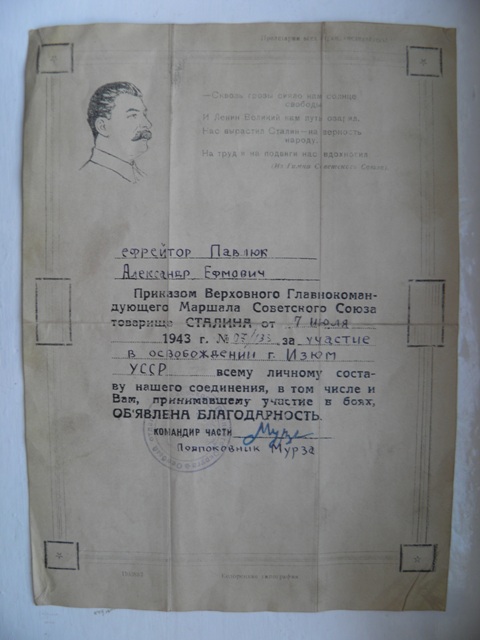 —Сквозь грозы сияло нам солнце
свободы
И Ленин Великий нам путь озарил.
Нас вырастил Сталин—на верность
народу,
На труд и на подвиги нас вдохновил.
(Из Гимна Советского Союза).
ефрейтор Павлюк
Александр Ефмович
Приказом Верховного Главнокоман-
дующего Маршала Советского Союза
товарища СТАЛИНА от 7 июля
1943 г. № за участие
в освобождении г. Изюм
УССР всему личному соста-
ву нашего соединения, в том числе и
Вам, принимавшему участие в боях,
ОБ'ЯВЛЕНА БЛАГОДАРНОСТЬ.
КОМАНДИР ЧАСТИ Мурза
Подпоковник Мурза
типография